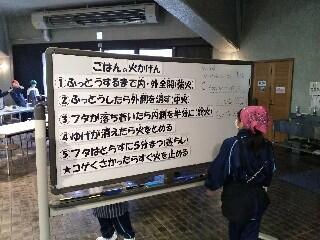 ごはんの火かげん
①ふっとうするまで内・外全開(強火)
②ふっとうしたら外側を消す(中火)
③フタが落ち着いたら内側を半分に(弱火)
④ゆげが消えたら火をとめる
⑤フタはとらずに5分まつ(蒸らし)
★コゲくさかったらすぐ火を止める